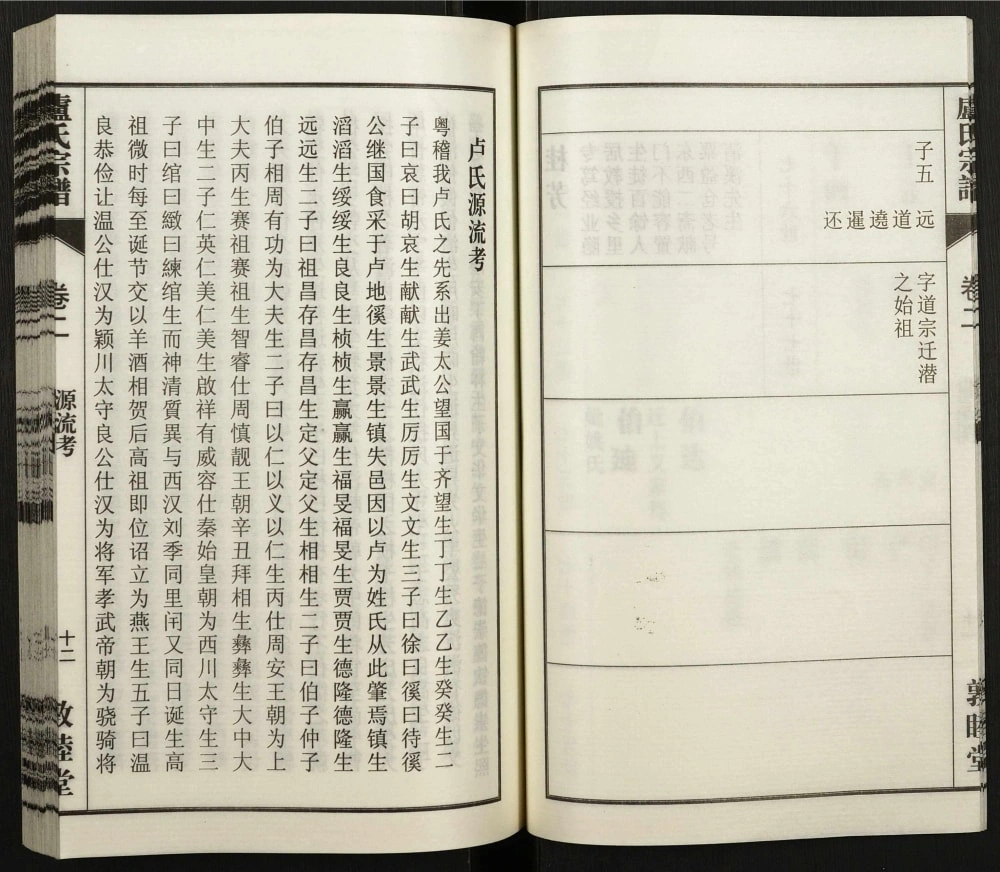 盧氏宗譜
卷二
子五
远道遶暹还
字道宗迁潜
之始祖
卢氏源流考
粤稽我卢氏之先系出姜太公望国于齐望生丁丁生乙乙生癸癸生二
子曰哀曰胡哀生献献生武武生厉厉生文文生三子曰徐曰徯曰待徯
公继国食采于卢地徯生景景生镇失邑因以卢为姓氏从此肇焉镇生
滔滔生绥绥生良良生桢桢生赢赢生福旻福旻生贾贾生德隆德隆生
远远生二子曰祖昌存昌存昌生定父定父生相相生二子曰伯子仲子
伯子相周有功为大夫生二子曰以仁以义以仁生丙仕周安王朝为上
大夫丙生赛祖赛祖生智睿仕周慎靓王朝辛丑拜相生彝彝生大中大
中生二子仁英仁美仁美生啟祥有威容仕秦始皇朝为西川太守生三
子曰绾曰緻曰練绾生而神清質異与西汉刘季同里闬又同日诞生高
祖微时每至诞节交以羊酒相贺后高祖即位诏立为燕王生五子曰温
良恭俭让温公仕汉为颖川太守良公仕汉为将军孝武帝朝为骁骑将
盧氏宗譜
卷二
源流考
十二
敦睦堂
敦睦堂